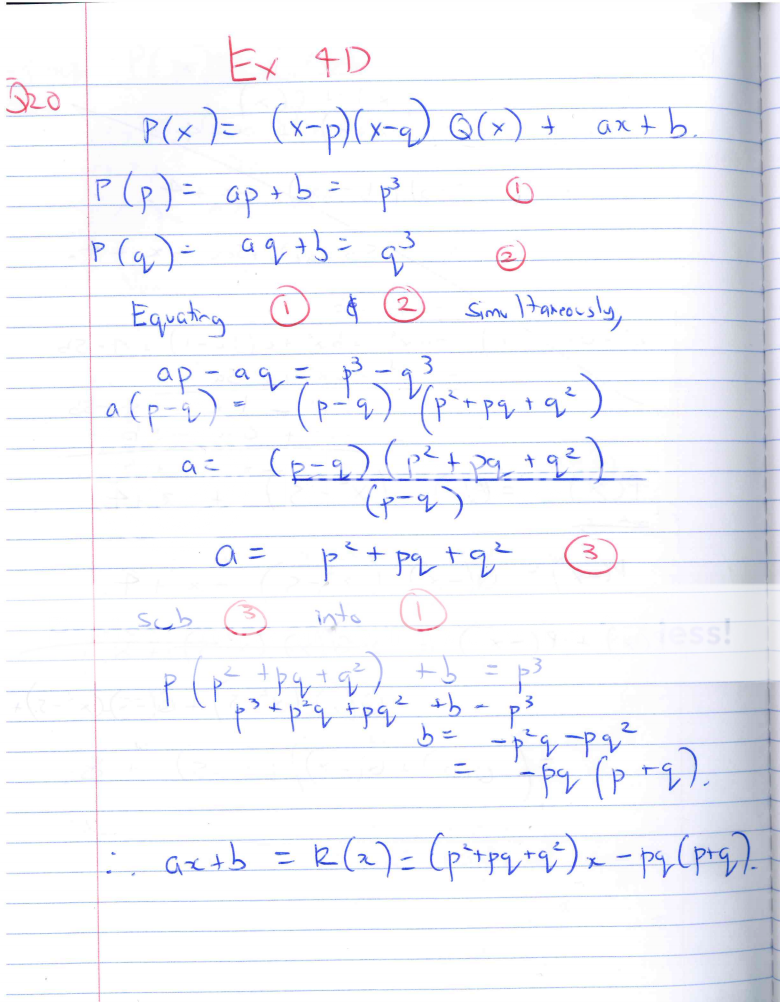 Ex 4D
Q20
P(x) = (x-p)(x-q) Q(x) + ax + b.
P(p) = ap + b = p³ ①
P(q) = aq + b = q³ ②
Equating ① & ② simultaneously,
ap - aq = p³ - q³
a(p-q) = (p-q) (p² + pq + q²)
a = (p-q)(p² + pq + q²)
(p-q)
a = p² + pq + q² ③
sub ③ into ①
p(p² + pq + q²) + b = p³
p³ + p²q + pq² + b = p³
b = -p²q - pq²
= -pq (p + q).
∴ ax + b = R(x) = (p² + pq + q²)x - pq(p+q).
iess!